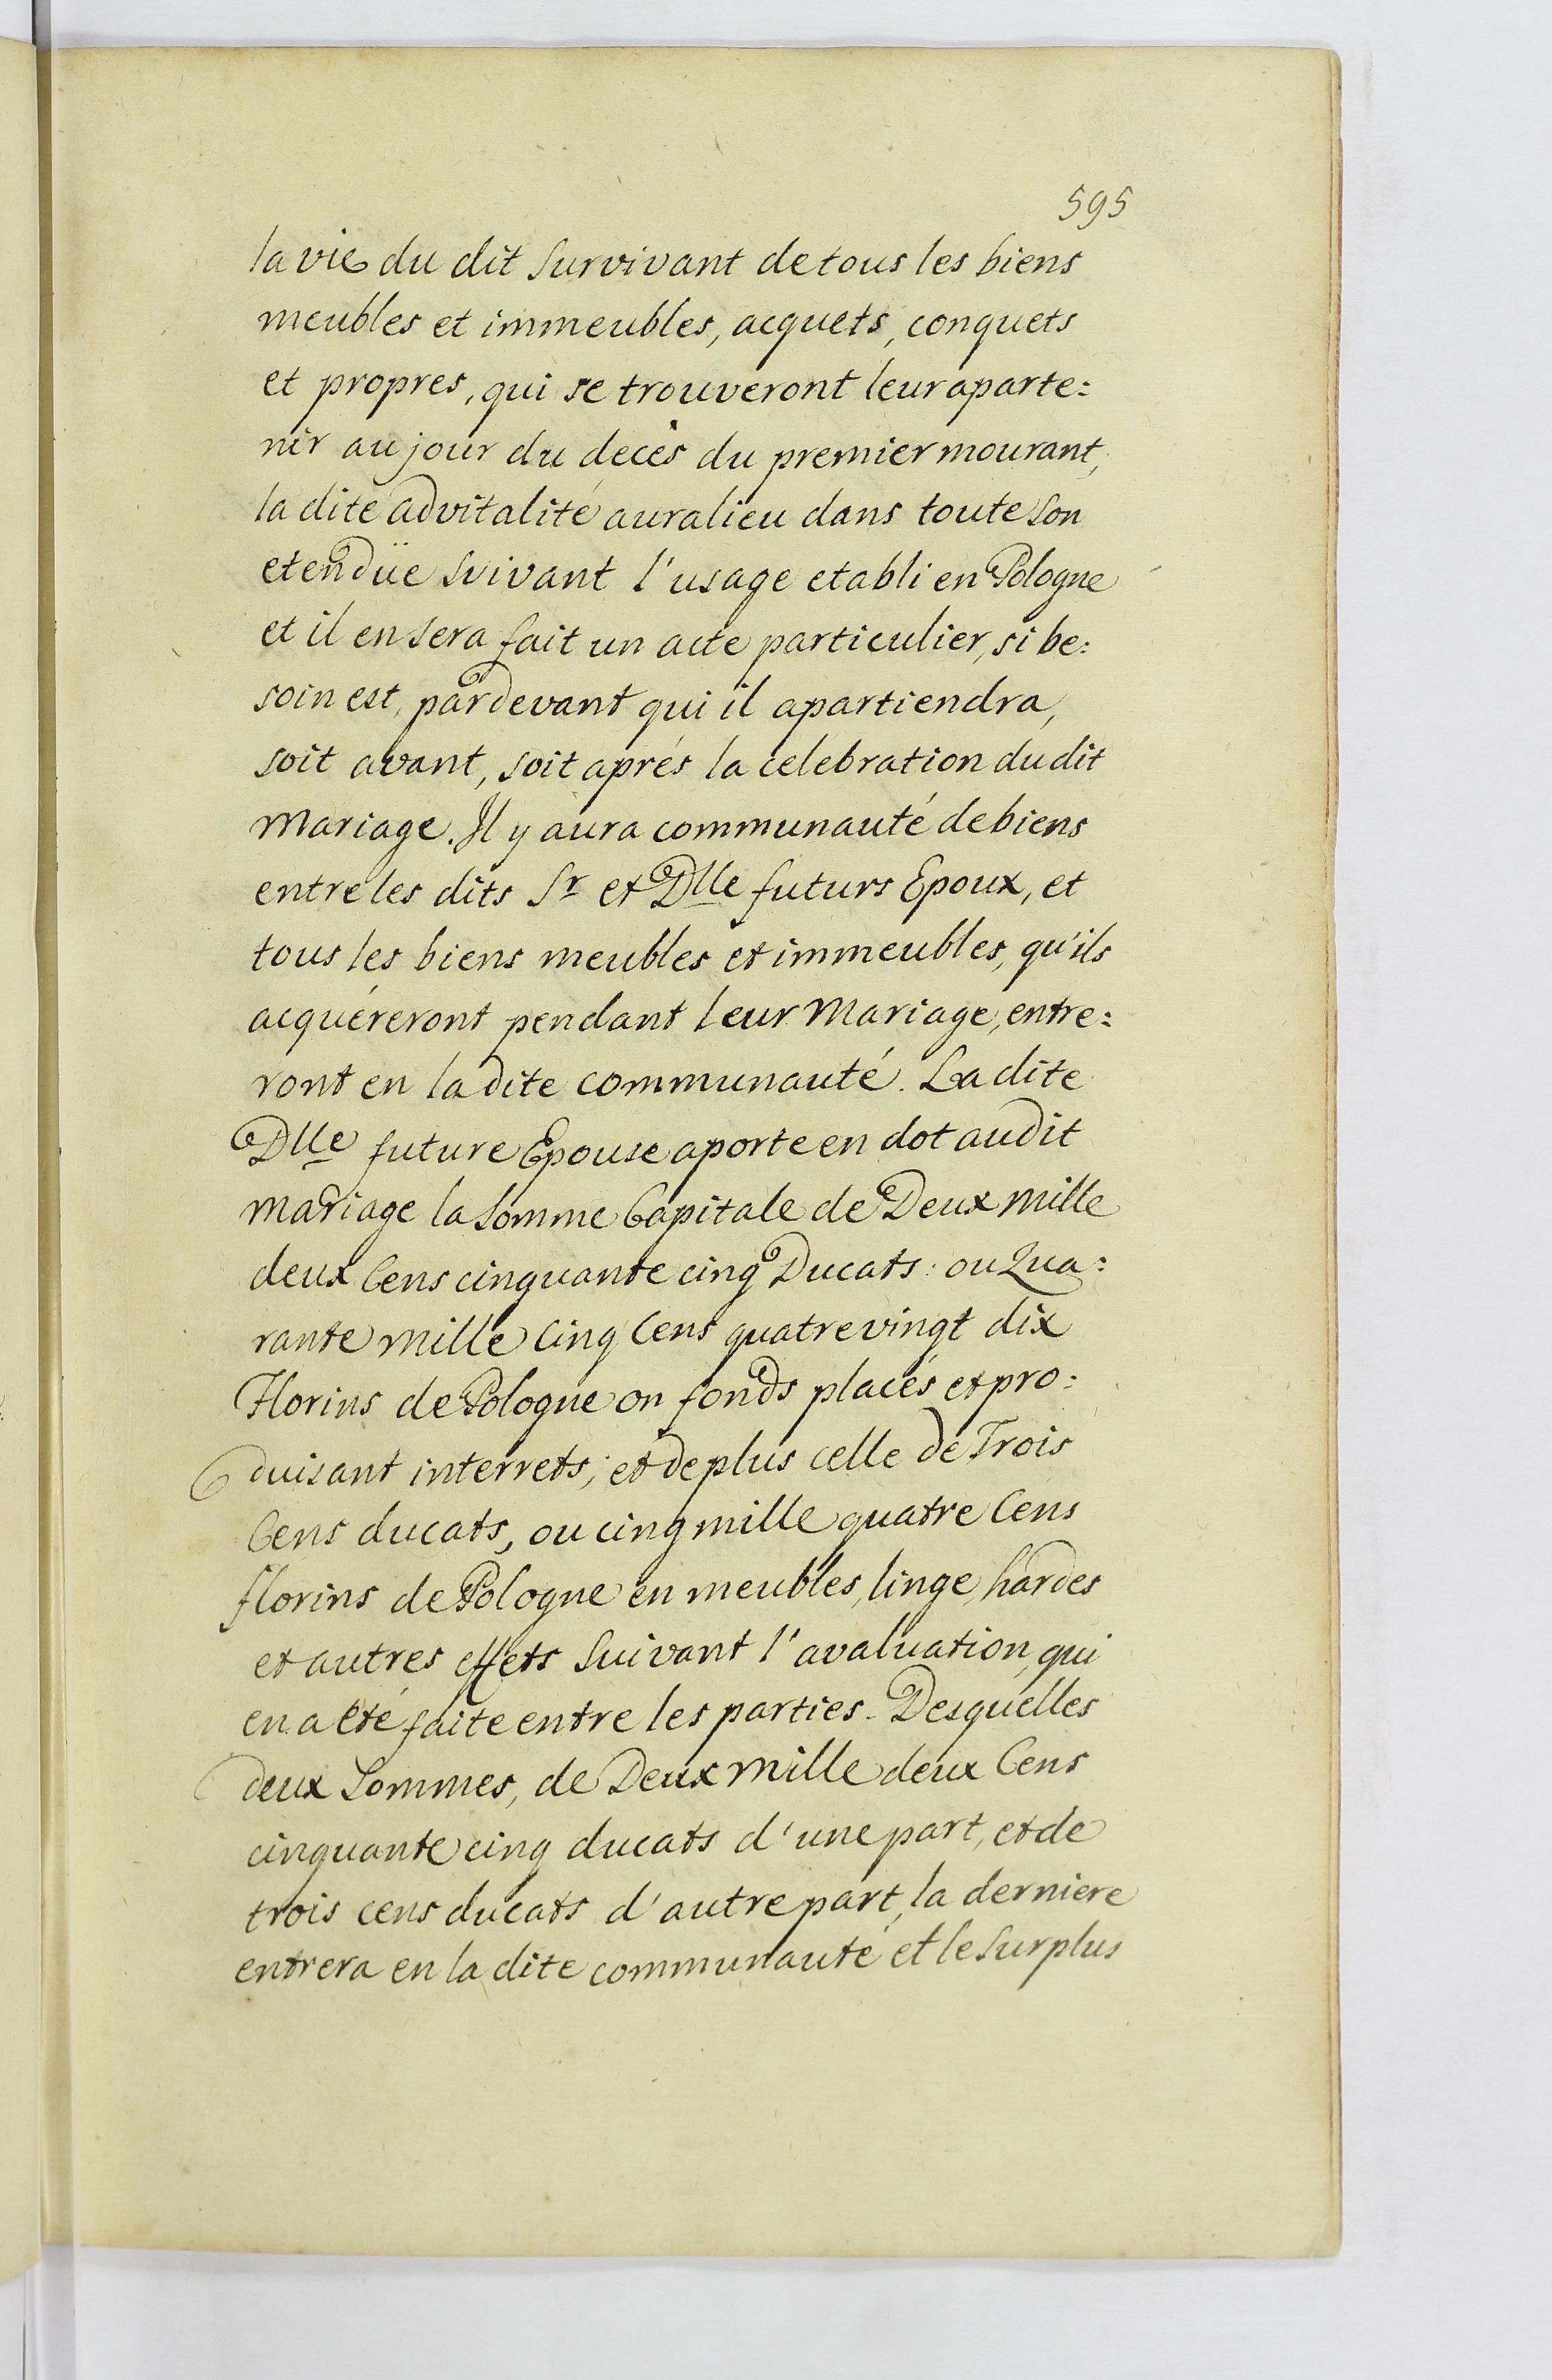 595
la vie du dit survivant de tous les biens
meubles et immeubles, acquets, conquets
et propres, qui se trouveront leur aparte=
nir au jour du decès du premier mourant,
la dite advitalité aura lieu dans toute son
etendüe suivant l'usage etabli en Pologne
et il en sera fait un acte particulier, si be=
soin est, pardevant qui il apartiendra,
soit avant, soit aprés la celebration du dit
Mariage. Il y aura communauté de biens
entre les dits Sr et Dlle futurs Epoux, et
tous les biens meubles et immeubles, qu'ils
acquéreront pendant leur Mariage, entre=
ront en la dite communauté. La dite
Dlle future Epouse aporte en dot au dit
Mariage la somme Capitale de Deux Mille
deux Cens cinquante cinq Ducats: ou Qua=
rante Mille Cinq Cens quatre vingt dix
Florins de Pologne on fonds placés et pro=
duisant interrets; et de plus celle de Trois
Cens ducats, ou cinq mille quatre Cens
florins de Pologne en meubles, linge, hardes
et autres effets suivant l'avaluation, qui
en a eté faite entre les parties. Desquelles
deux Sommes, de Deux Mille deux Cens
cinquante cinq ducats d'une part, et de
trois cens ducats d'autre part, la derniere
entrera en la dite communauté et le surplus